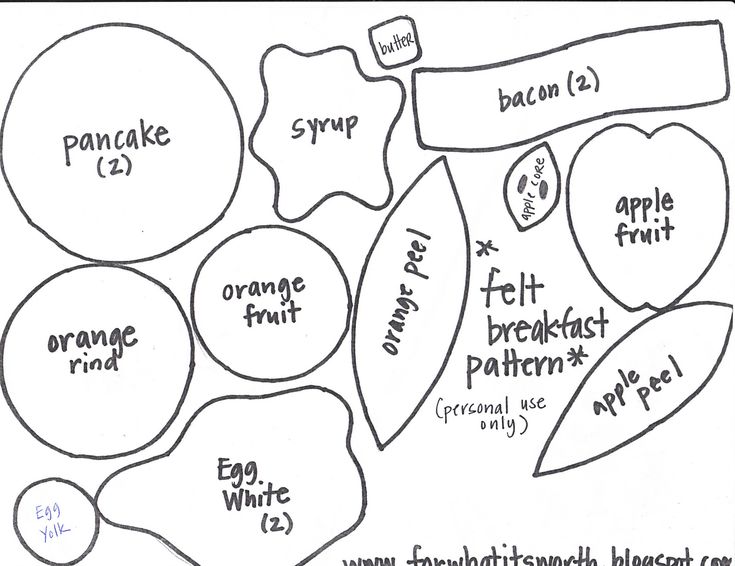 butter
pancake
(2)
syrup
bacon (2)
apple core
apple
fruit
orange
fruit
orange peel
*
felt
breakfast
pattern*
(personal use
only)
orange
rind
apple peel
Egg
White
(2)
Egg
Yolk
www.forwhatitsworth.blogspot.com